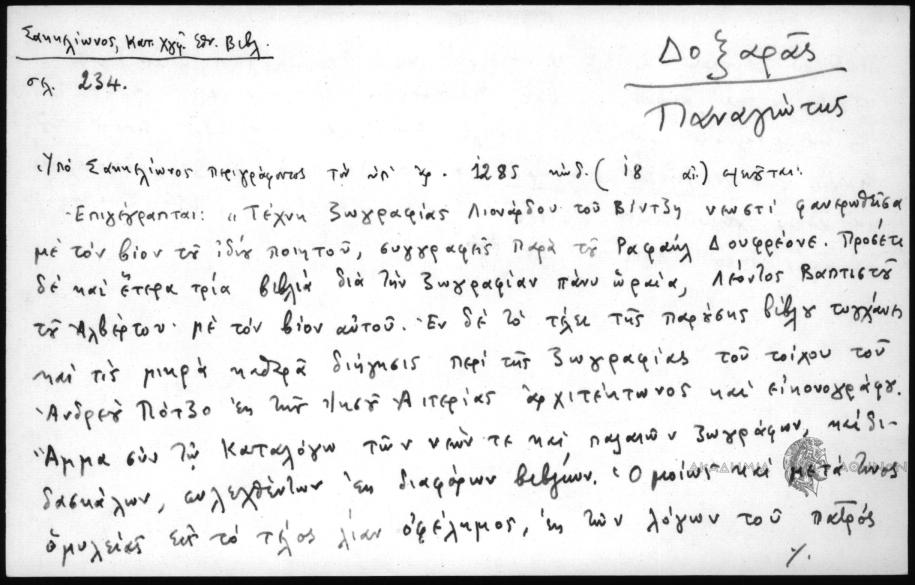 Σακκελίωνος, Κατ. χγφ. Εθν. Βιβλ.
σελ. 234.
Δοξαρᾶς
Παναγιώτης
Ὑπό Σακκελίωνος περιγράφοντος τὸν ὑπ' ἀρ. 1285 κώδ. (18 αἰ.)
Ἐπιγέγραπται: "Τέχνη Ζωγραφίας Λιονάρδου τοῦ Βίντζη νεωστί φανερωθῆσα
μέ τόν βίον τοῦ ἰδίου ποιητοῦ, συγγραφῆς παρά τοῦ Ραφαήλ Δουφρεονε. Προσέτι
δέ καί ἕτερα τρία βιβλία διά τήν Ζωγραφίαν πάνυ ὡραῖα, Λεόντος Βαπτιστοῦ
τοῦ Ἀλβέρτου μέ τόν βίον αὐτοῦ. Ἐν δέ τό τέλει τῆς παρούσης βίβλου τυγχάνει
καί τίς μικρά καθαρά διήγησις περί τῆς Ζωγραφίας τοῦ τοίχου τοῦ
Ἀνδρεου Πότζο ἐκ τῆς Ἰησοῦ Ἀιτερίας ἀρχιτέκτωνος καί εἰκονογράφου.
Ἅμμα σύν τῷ Καταλόγω τῶν νεῶν τε καί παλαιῶν Ζωγράφων, καί δι-
δασκάλων, συλεχθέντων ἐκ διαφόρων βιβλίων. Ὁμοίως καί μετά τινος
ὁμυλείας εἰς τό τέλος λίαν ὀφέλημος, ἐκ τῶν λόγων τοῦ πατρός
./.
ΑΚΑΔΗΜΙΑ ΑΘΗΝΩΝ